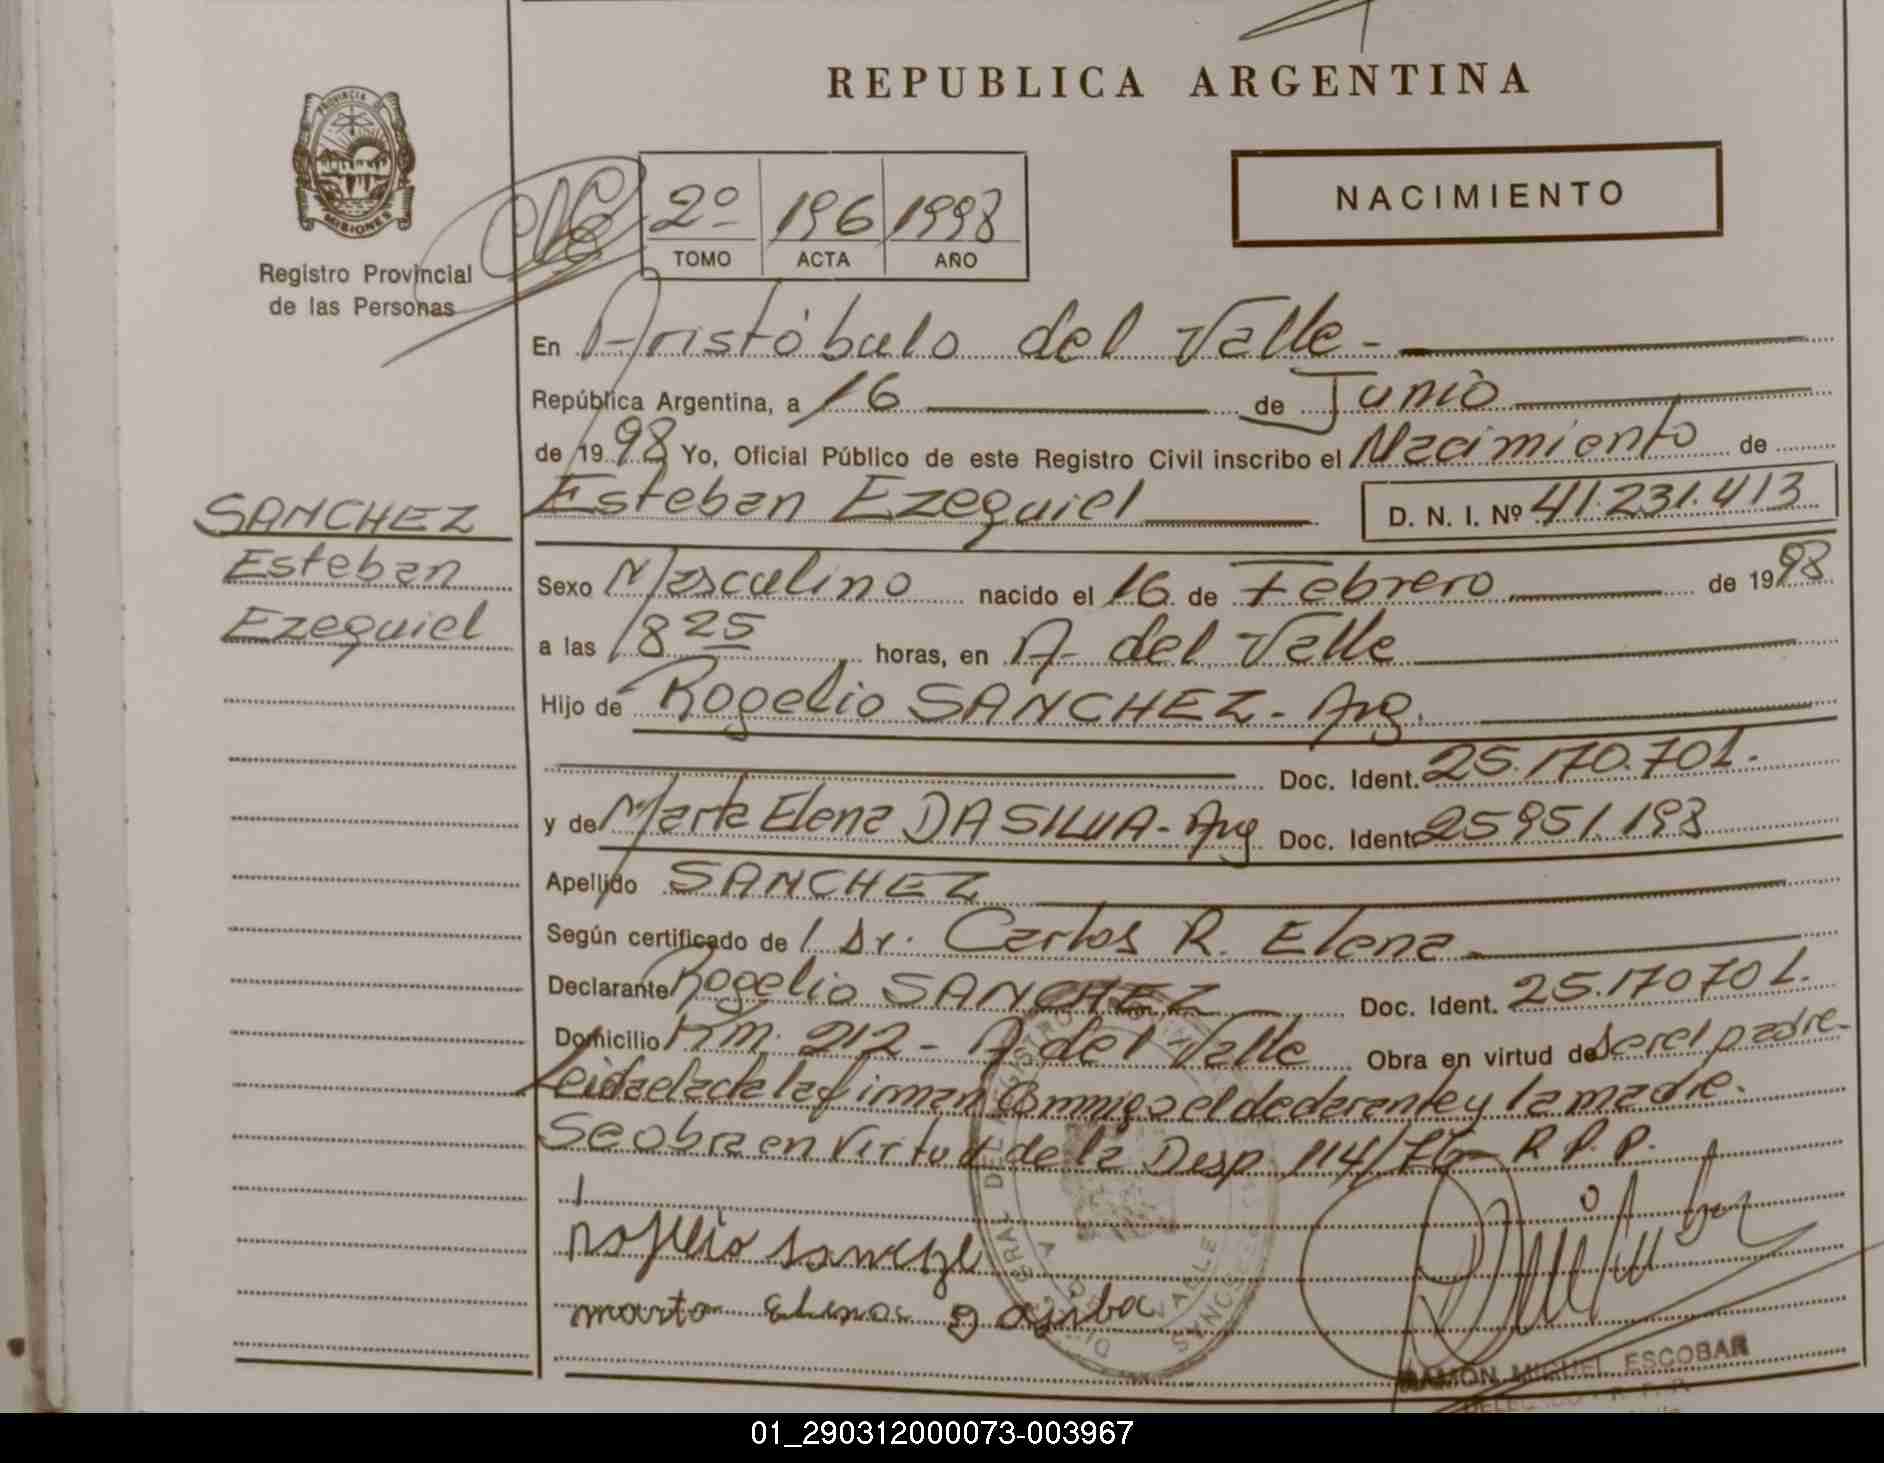 REPUBLICA ARGENTINA
PROVINCIA DE
MISIONES
Registro Provincial
de las Personas
2º 196 1998
TOMO ACTA AÑO
NACIMIENTO
En Aristóbulo del Valle-
República Argentina, a 16 de Junio
de 1998 Yo, Oficial Público de este Registro Civil inscribo el Nacimiento de
Esteban Ezequiel D. N. I. Nº 41.231.413
SANCHEZ
Esteban
Ezequiel
Sexo Masculino nacido el 16 de Febrero de 1998
a las 18 25 horas, en A. del Valle
Hijo de Rogelio SANCHEZ - Arg.
Doc. Ident. 25.170.701.
y de Marta Elena DA SILVA - Arg Doc. Ident. 25951.193
Apellido SANCHEZ
Según certificado de l Dr. Carlos R. Elena
Declarante Rogelio SANCHEZ Doc. Ident. 25.170701.
Domicilio Km. 212 - A del Valle Obra en virtud de ser el padre-
Leida el acta la firman conmigo el declarante y la madre.
Se obra en virtud de la Disp. 114/76- R.P.P.
RAMON MIGUEL ESCOBAR
01_290312000073-003967